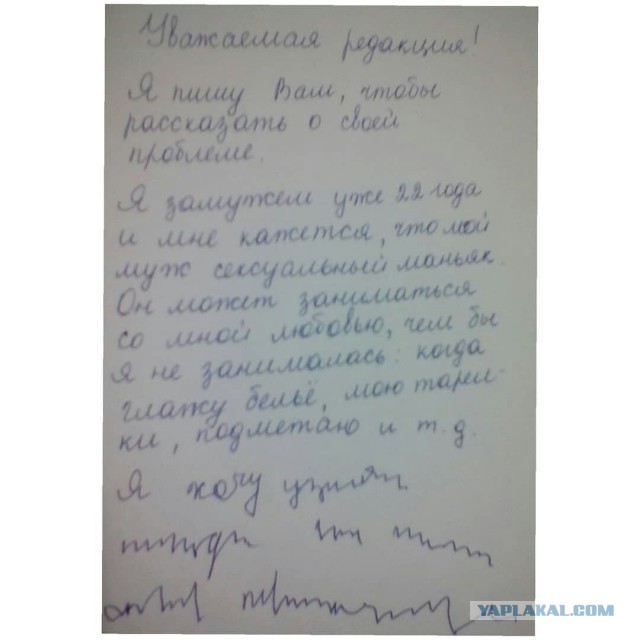 Уважаемая редакция!
Я пишу Вам, чтобы
рассказать о своей
проблеме.
Я замужем уже 22 года
и мне кажется, что мой
муж сексуальный маньяк.
Он может заниматься
со мной любовью, чем бы
я не занималась: когда
глажу бельё, мою тарел-
ки, подметаю и т.д.
Я хочу
YAPLAKAL.COM